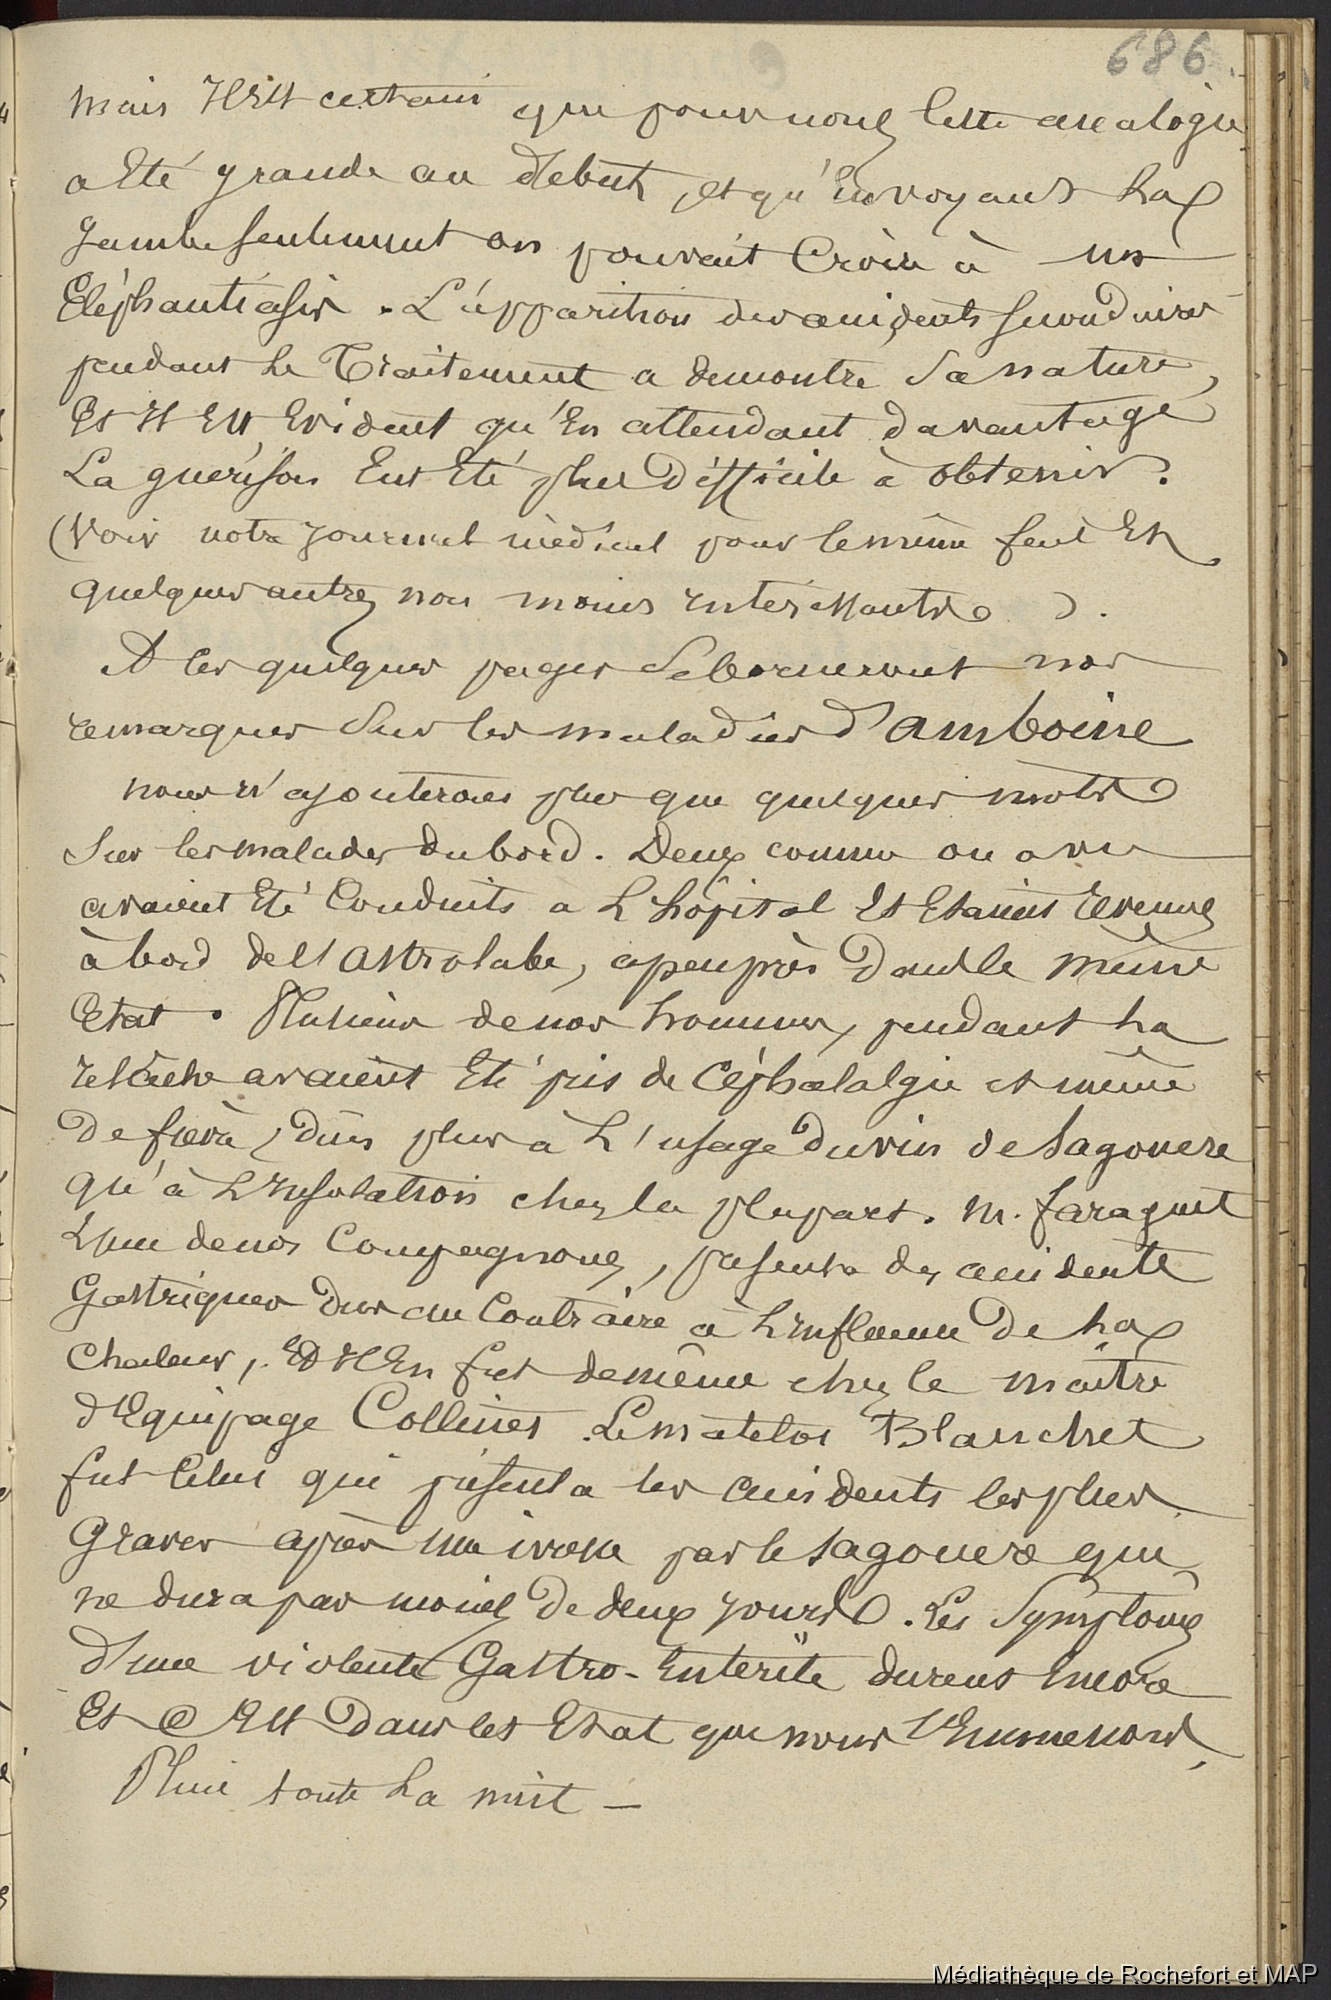 686
mais il est certain que pour nous cette analogie
a Eté grande au début, et qu'En voyant la
jambe seulement on pouvait Croire à un
Eléphantiasis. L'apparition des accidents secondaires
pendant le Traitement a demontré sa nature,
Et il Est Evident qu'En attendant davantage
La guérison Eut Eté plus difficile à obtenir.
(Voir notre journal médical pour le même fait Et
quelques autres non moins intéressants).
A ces quelques pages se borneront nos
remarques sur les maladies d'amboine
nous n'ajouterons plus que quelques mots
sur les malades du bord. Deux comme on a vu
avaient Eté Conduits a L'hôpital Et Etaient revenus
à bord de l'astrolabe, a peu près dans le même
Etat. Plusieurs de nos hommes, pendant la
relâche avaient Eté pris de Céphalalgie et même
De fièvre, dûes plus à L'usage du vin de sagouere
qu'à L'insolation chez la plupart. M. faraguet
L'un de nos Compagnons, présenta des accidents
Gastriques dus au Contraire à L'influence de la
Chaleur, Et il En fut de même chez le maître
d'Equipage Collinet. Le matelot Blanchet
fut Celui qui présenta les accidents les plus
Graves après une ivresse par le sagouere qui
ne dura pas moins De deux jours. Les Symptômes
d'une violente Gastro-Entérite durent Encore
Et C'Est Dans cet Etat que nous l'Emmenons,
Pluie toute La nuit —
Médiathèque de Rochefort et MAP